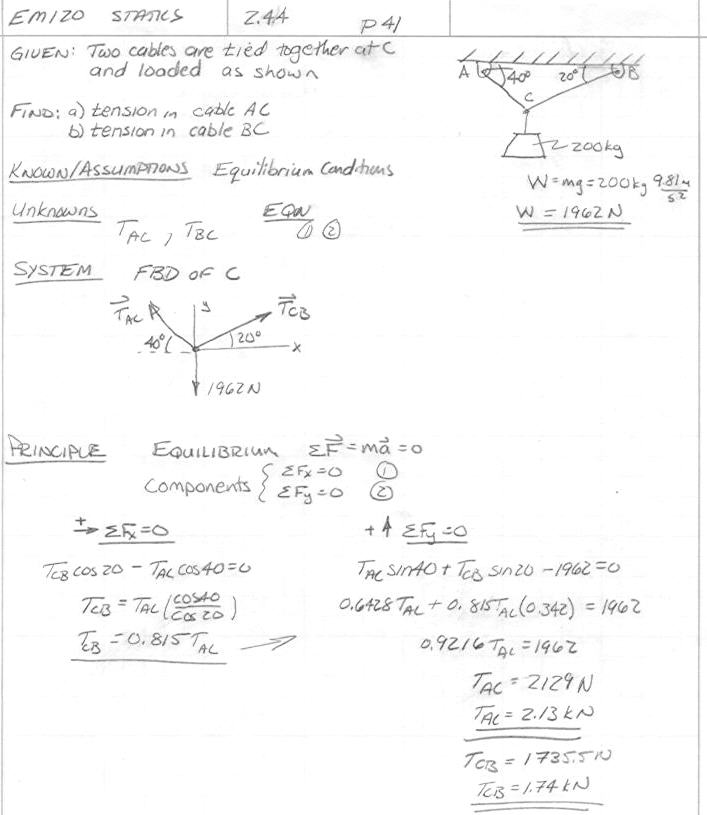 EM120 STATICS 2.44 P 41
GIVEN: Two cables are tied together at C
and loaded as shown
A 40° 20° B
C
200kg
FIND: a) tension in cable AC
b) tension in cable BC
KNOWN/ASSUMPTIONS Equilibrium Conditions
W = mg = 200kg 9.81 m/s²
W = 1962 N
Unknowns EQN
T_AC, T_BC ① ②
SYSTEM FBD OF C
T⃗_AC y T⃗_CB
40° 20° x
1962 N
PRINCIPLE EQUILIBRIUM ΣF⃗ = ma⃗ = 0
Components { ΣFx = 0 ①
ΣFy = 0 ②
+→ ΣFx = 0
T_CB cos 20 - T_AC cos 40 = 0
T_CB = T_AC (cos40/cos 20)
T_CB = 0.815 T_AC
+↑ ΣFy = 0
T_AC sin40 + T_CB sin20 - 1962 = 0
0.6428 T_AC + 0.815 T_AC (0.342) = 1962
0.9216 T_AC = 1962
T_AC = 2129 N
T_AC = 2.13 kN
T_CB = 1735.5 N
T_CB = 1.74 kN